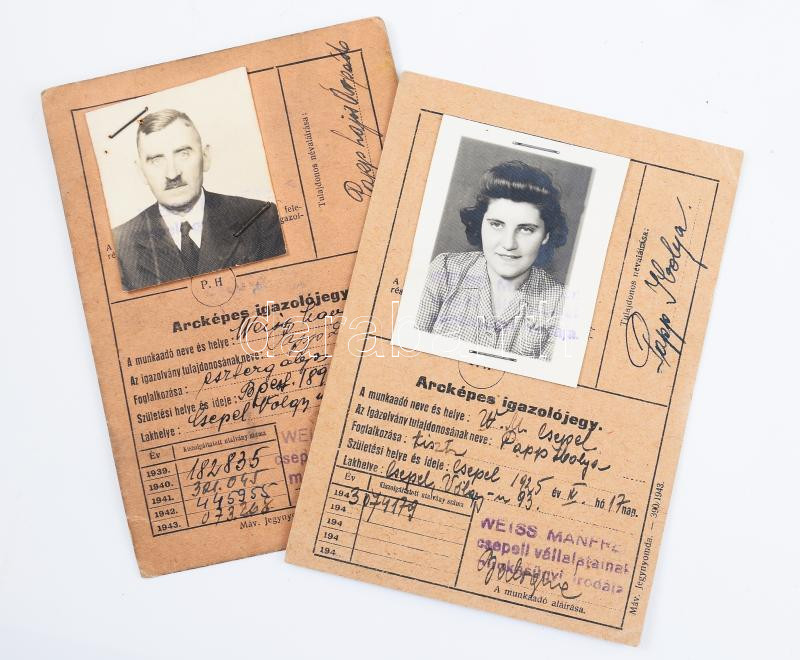 Papp Lajos Árpád
Tulajdonos névaláírása:
P. H
Arcképes igazolójegy
A munkaadó neve és helye: Weiss
Az igazolvány tulajdonosának neve: Papp
Foglalkozása: esztergályos
Születési helye és ideje: Bpest. 189
Lakhelye: Csepel Völgy u
Év Kiszolgáltatott utalvány száma
1939. 182835
1940.
1941.
1942. 445955
1943. 073266
WEIS
csepel
Máv. jegynyo
Papp Ibolya.
Tulajdonos névaláírása:
darabanth
Arcképes igazolójegy.
A munkaadó neve és helye: W. M. Csepel
Az Igazolvány tulajdonosának neve: Papp Ibolya
Foglalkozása: tiszt
Születési helye és ideje: Csepel 1925 év IV. hó 17 nap.
Lakhelye: Csepel, Völgy-u 93.
Év Kiszolgáltatott utalvány száma
194 3079179
194
194
194
194
WEISS MANFRÉ
csepeli vállalatainak
irodája
A munkaadó aláírása.
Máv. jegynyomda. — 390/1943.